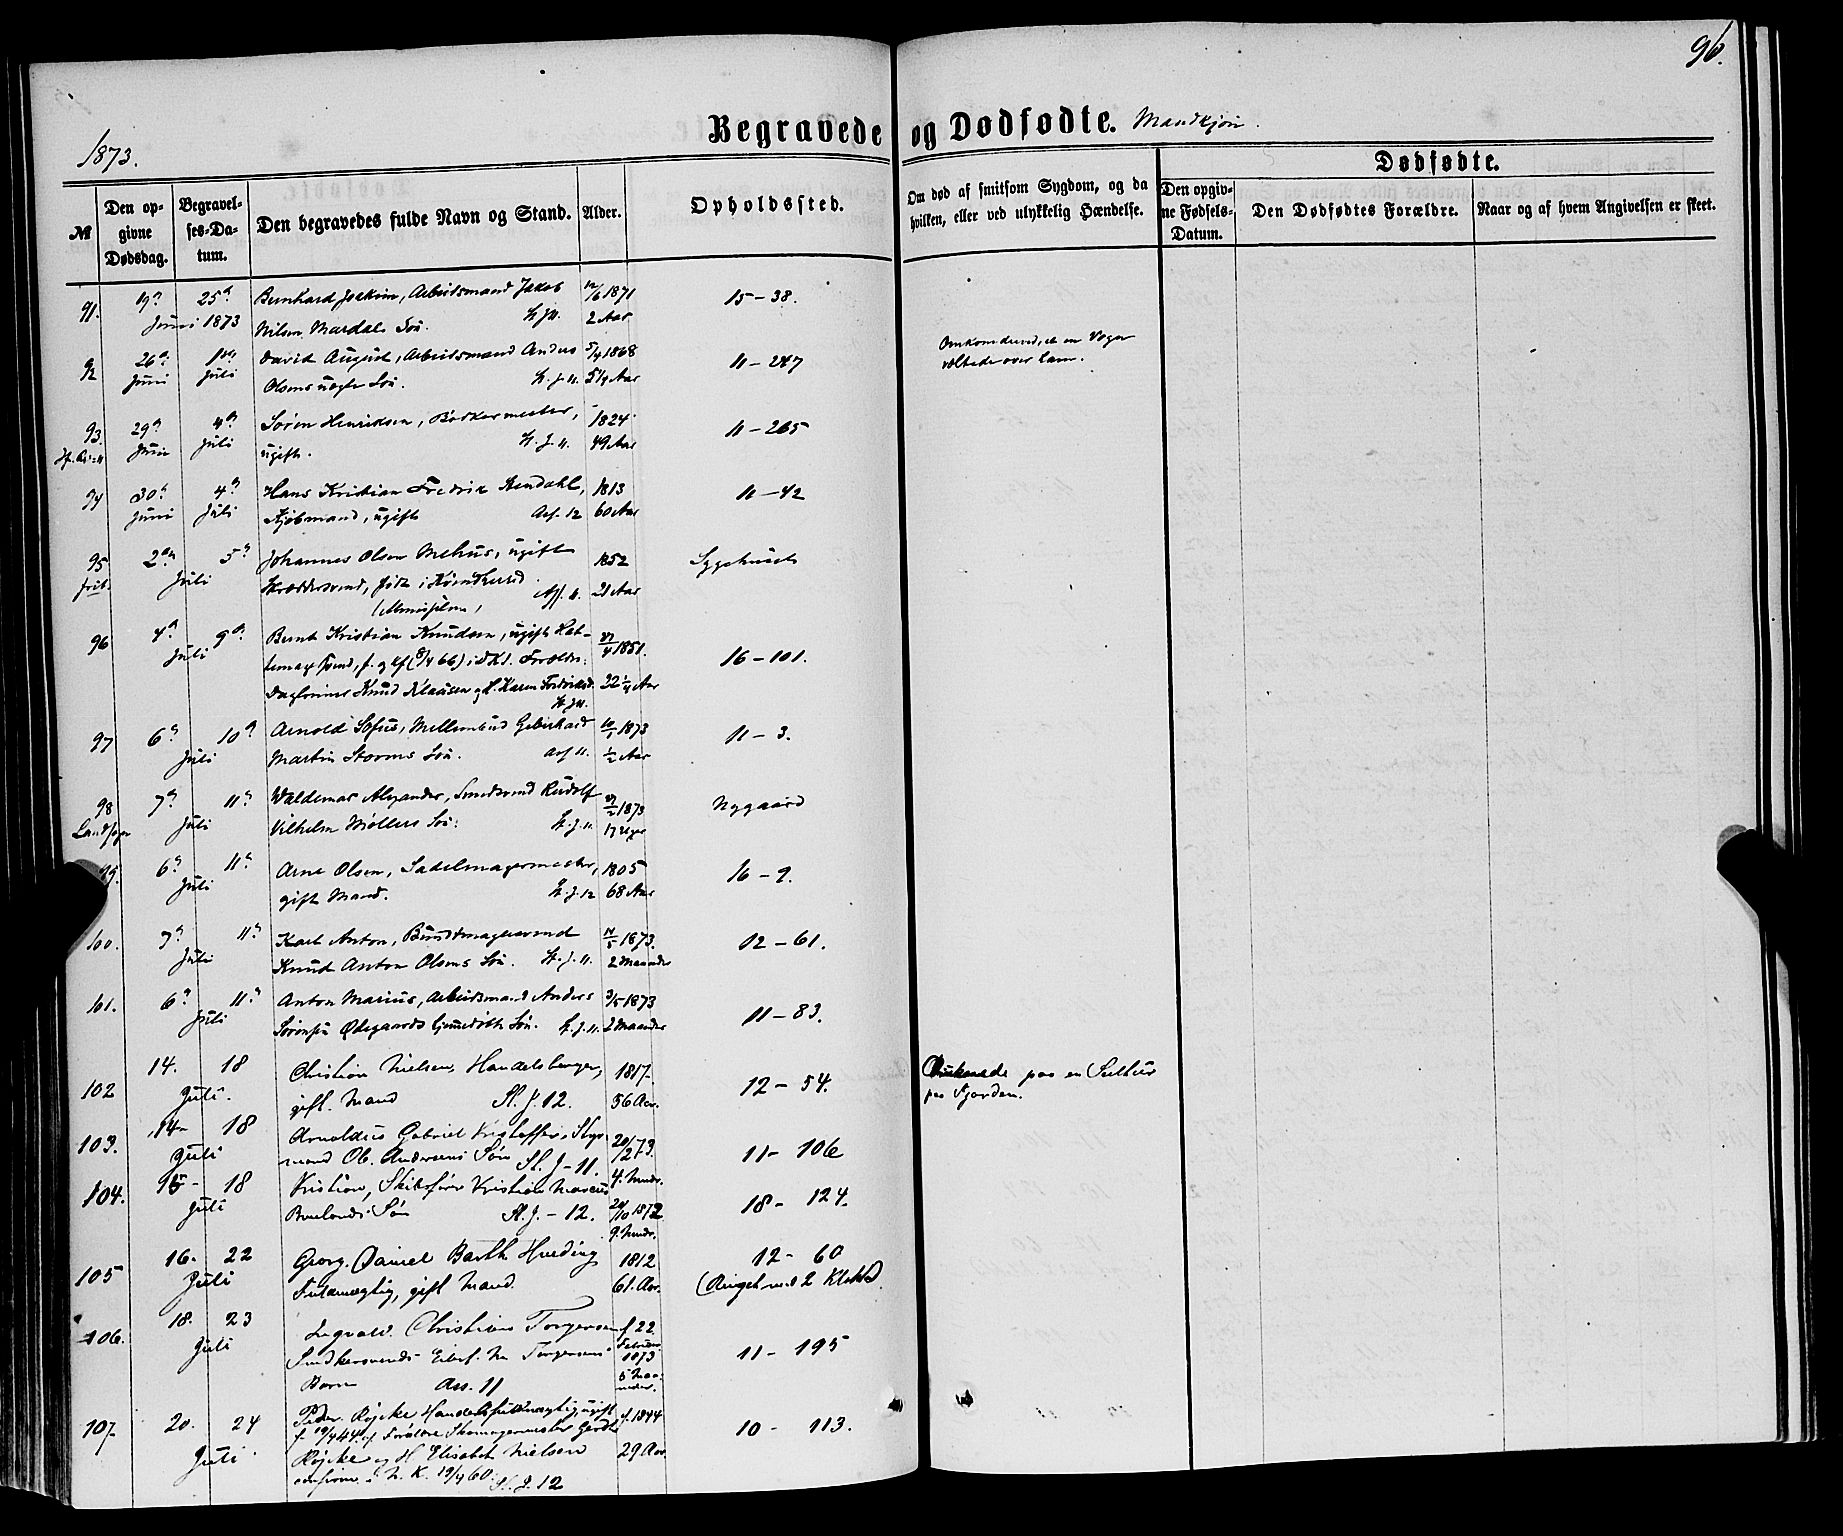 96.
1873.
Begravede og Dødfødte. Mandkjøn.
Dødfødte.
№
Den opgivne Dødsdag.
Begravelses-Datum.
Den begravedes fulde Navn og Stand.
Alder.
Opholdssted.
Om død af smitsom Sygdom, og da
hvilken, eller ved ulykkelig Hændelse.
Den opgivne Fødsels-Datum.
Den Dødfødtes Forældre.
Naar og af hvem Angivelsen er skeet.
91. 19 25 Bernhard Joakim, Arbeidsmand Jakob 1871 15-38.
Juni 1873 Nilsen Mardals Søn. 2 Aar
92 26 1 David August, Arbeidsmand Anders 5/4 1868 11-247 Omkom derved, at en Vogn
Juni Juli Olsens uægte Søn. St. J. 11. 5 1/4 Aar væltede over ham.
93. 29 4 Søren Henriksen, Bødkermester, 1824 11-265
Juni Juli ugift. St. J. 11. 49 Aar
94 30 4 Hans Kristian Fredrik Stendahl, 1813 11-42
Juni Juli Kjøbmand, ugift Ass. 12 60 Aar
95 2 5 Johannes Olsen Mehus, ugift 1852 Sygehuset
frib. Juli Skræddersvend, født i Kvindherred. Ass. 11. 21 Aar
96 4 9 Bernt Kristian Knudsen, ugift Hat- 1851. 16-101.
Juli temagersvend, f. og kf (8/4 66) i DK. Forældre:
Daglønner Knud Klausen og H. Karen Fredriksd. 22 1/4 Aar
St. J. 11.
97 6 10 Arnold Sofus, Mellembud Gebhard 1873 11-3.
Juli Martin Storms Søn. Ass 11. 1/2 Aar
98 7 11 Valdemar Alexander, Smedsvend Rudolf 1873 Nygaard
Landsogn Juli Vilhelm Møllers Søn. St. J. 11. 17 Uger
99. 6 11 Arne Olsen, Sadelmagermester, 1805 16-9.
Juli gift Mand. St. J. 12 68 Aar
100. 7 11 Karl Anton, Bundtmagersvend 1873. 12-61.
Juli Knud Anton Olsens Søn. St. J. 11. 2 Maaneder
101. 6 11 Anton Marius, Arbeidsmand Anders 9/5 1873 11-83.
Juli Sørensen Ødegaards Søn. St. J. 11. 2 Maaneder
102 14. 18 Christian Nielsen, Handelsborger, 1817. 12-54. Druknede paa en
Juli. gift. Mand St. J. 12. 56 Aar. paa Fjorden.
103. 14 18 Arnoldus Gabriel Kristoffer, Styr- 20/2 73. 11-106
Juli mand Ob. Andersens Søn St. J-11. 4. Mndr.
104. 15- 18 Kristian, Skibsfører Kristian Marcus 18-124.
Juli Søn St. J.-12. 20/10 1872
9. Mndr.
105 16. 22 Georg. Daniel Barth Hveding 1812 12-60
Juli Fuldmægtig, gift Mand. 61. Aar. (Ringet med 2 Klokker)
106. 18. 23 Ingvald. Christian Torgersen f 22 11-195
Juli Snedkersvend Torgersens Februar 1873
Barn Ass. 11 5 Maaneder.
107. 20. 24 Peder Røjcke Handelsfuldmægtig ugift f. 1844 10-113.
f. 19/4 44 af Forældre Skomagermester Gerdt
Juli. Røjcke og H Elisabet Nielsen 29 Aar
confirm. i N. K. 19/4 60. St. J. 12